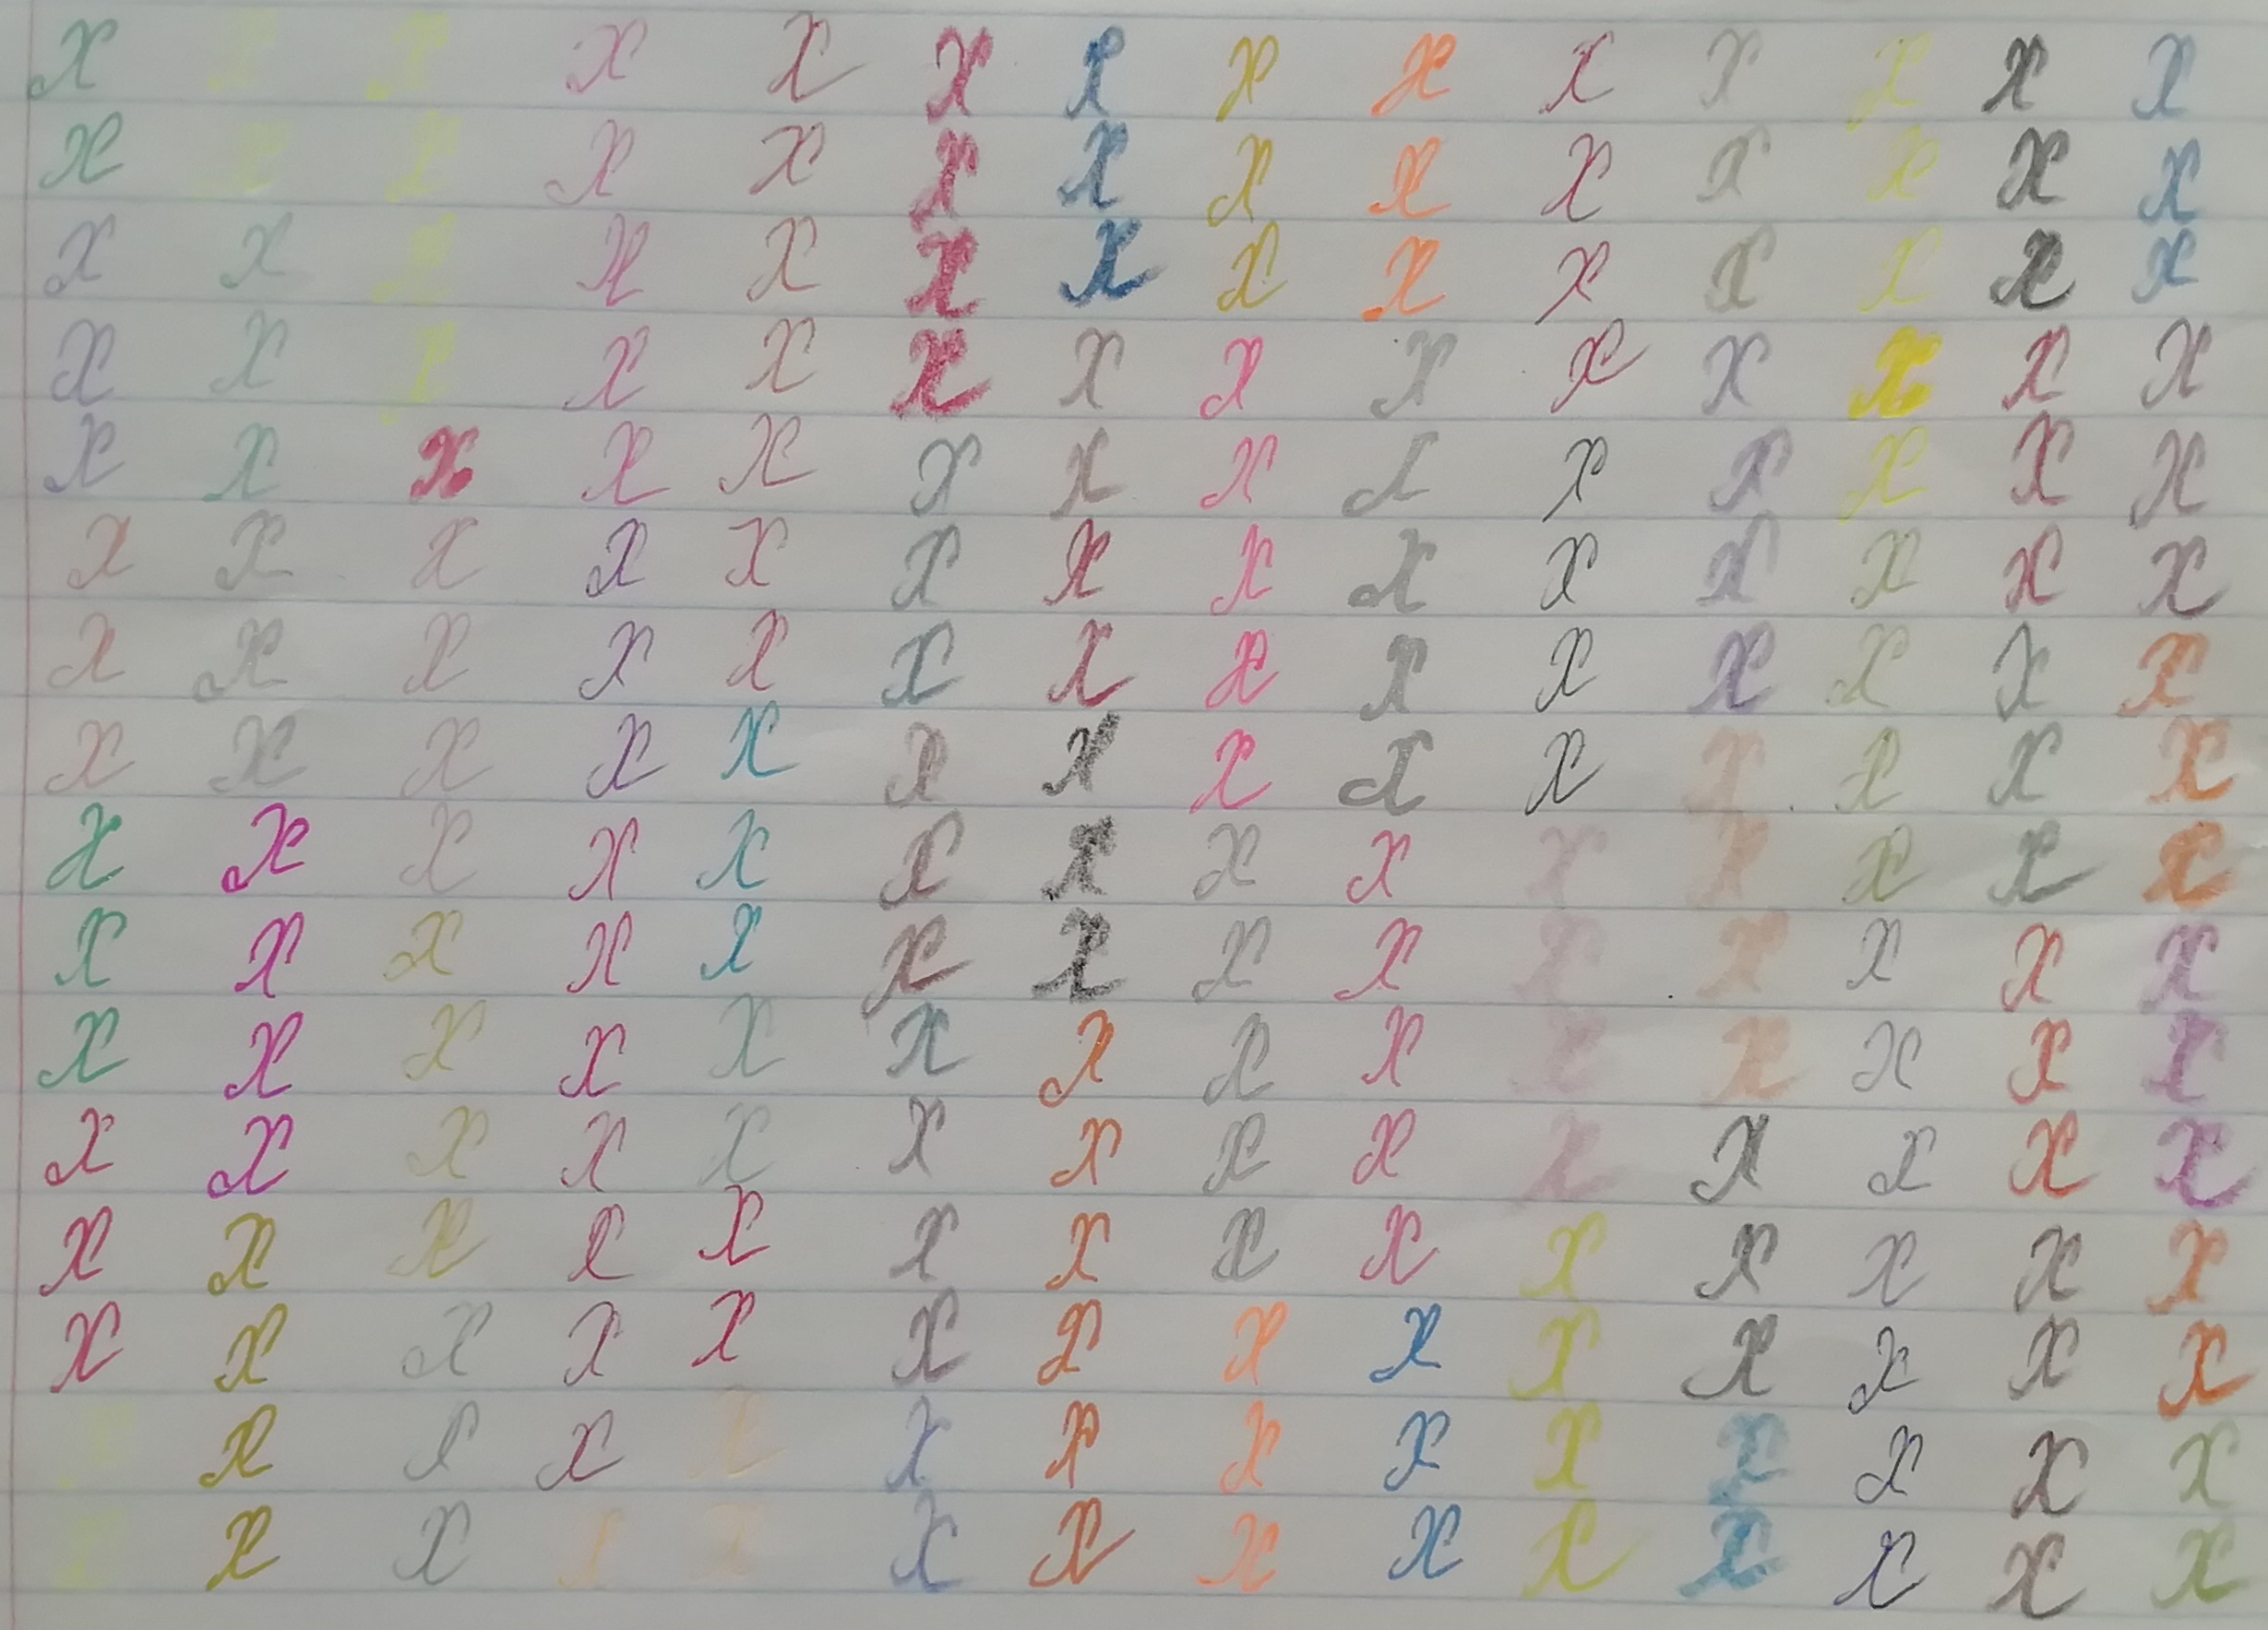 X X X X X X X X X X X X X X
X X X X X X X X X X X X X X
X X X X X X X X X X X X X X
X X X X X X X X X X X X X X
X X X X X X X X X X X X X X
X X X X X X X X X X X X X X
X X X X X X X X X X X X X X
X X X X X X X X X X X X X X
X X X X X X X X X X X X X X
X X X X X X X X X X X X X X
X X X X X X X X X X X X X X
X X X X X X X X X X X X X X
X X X X X X X X X X X X X X
X X X X X X X X X X X X X X
X X X X X X X X X X X X X X
X X X X X X X X X X X X X X